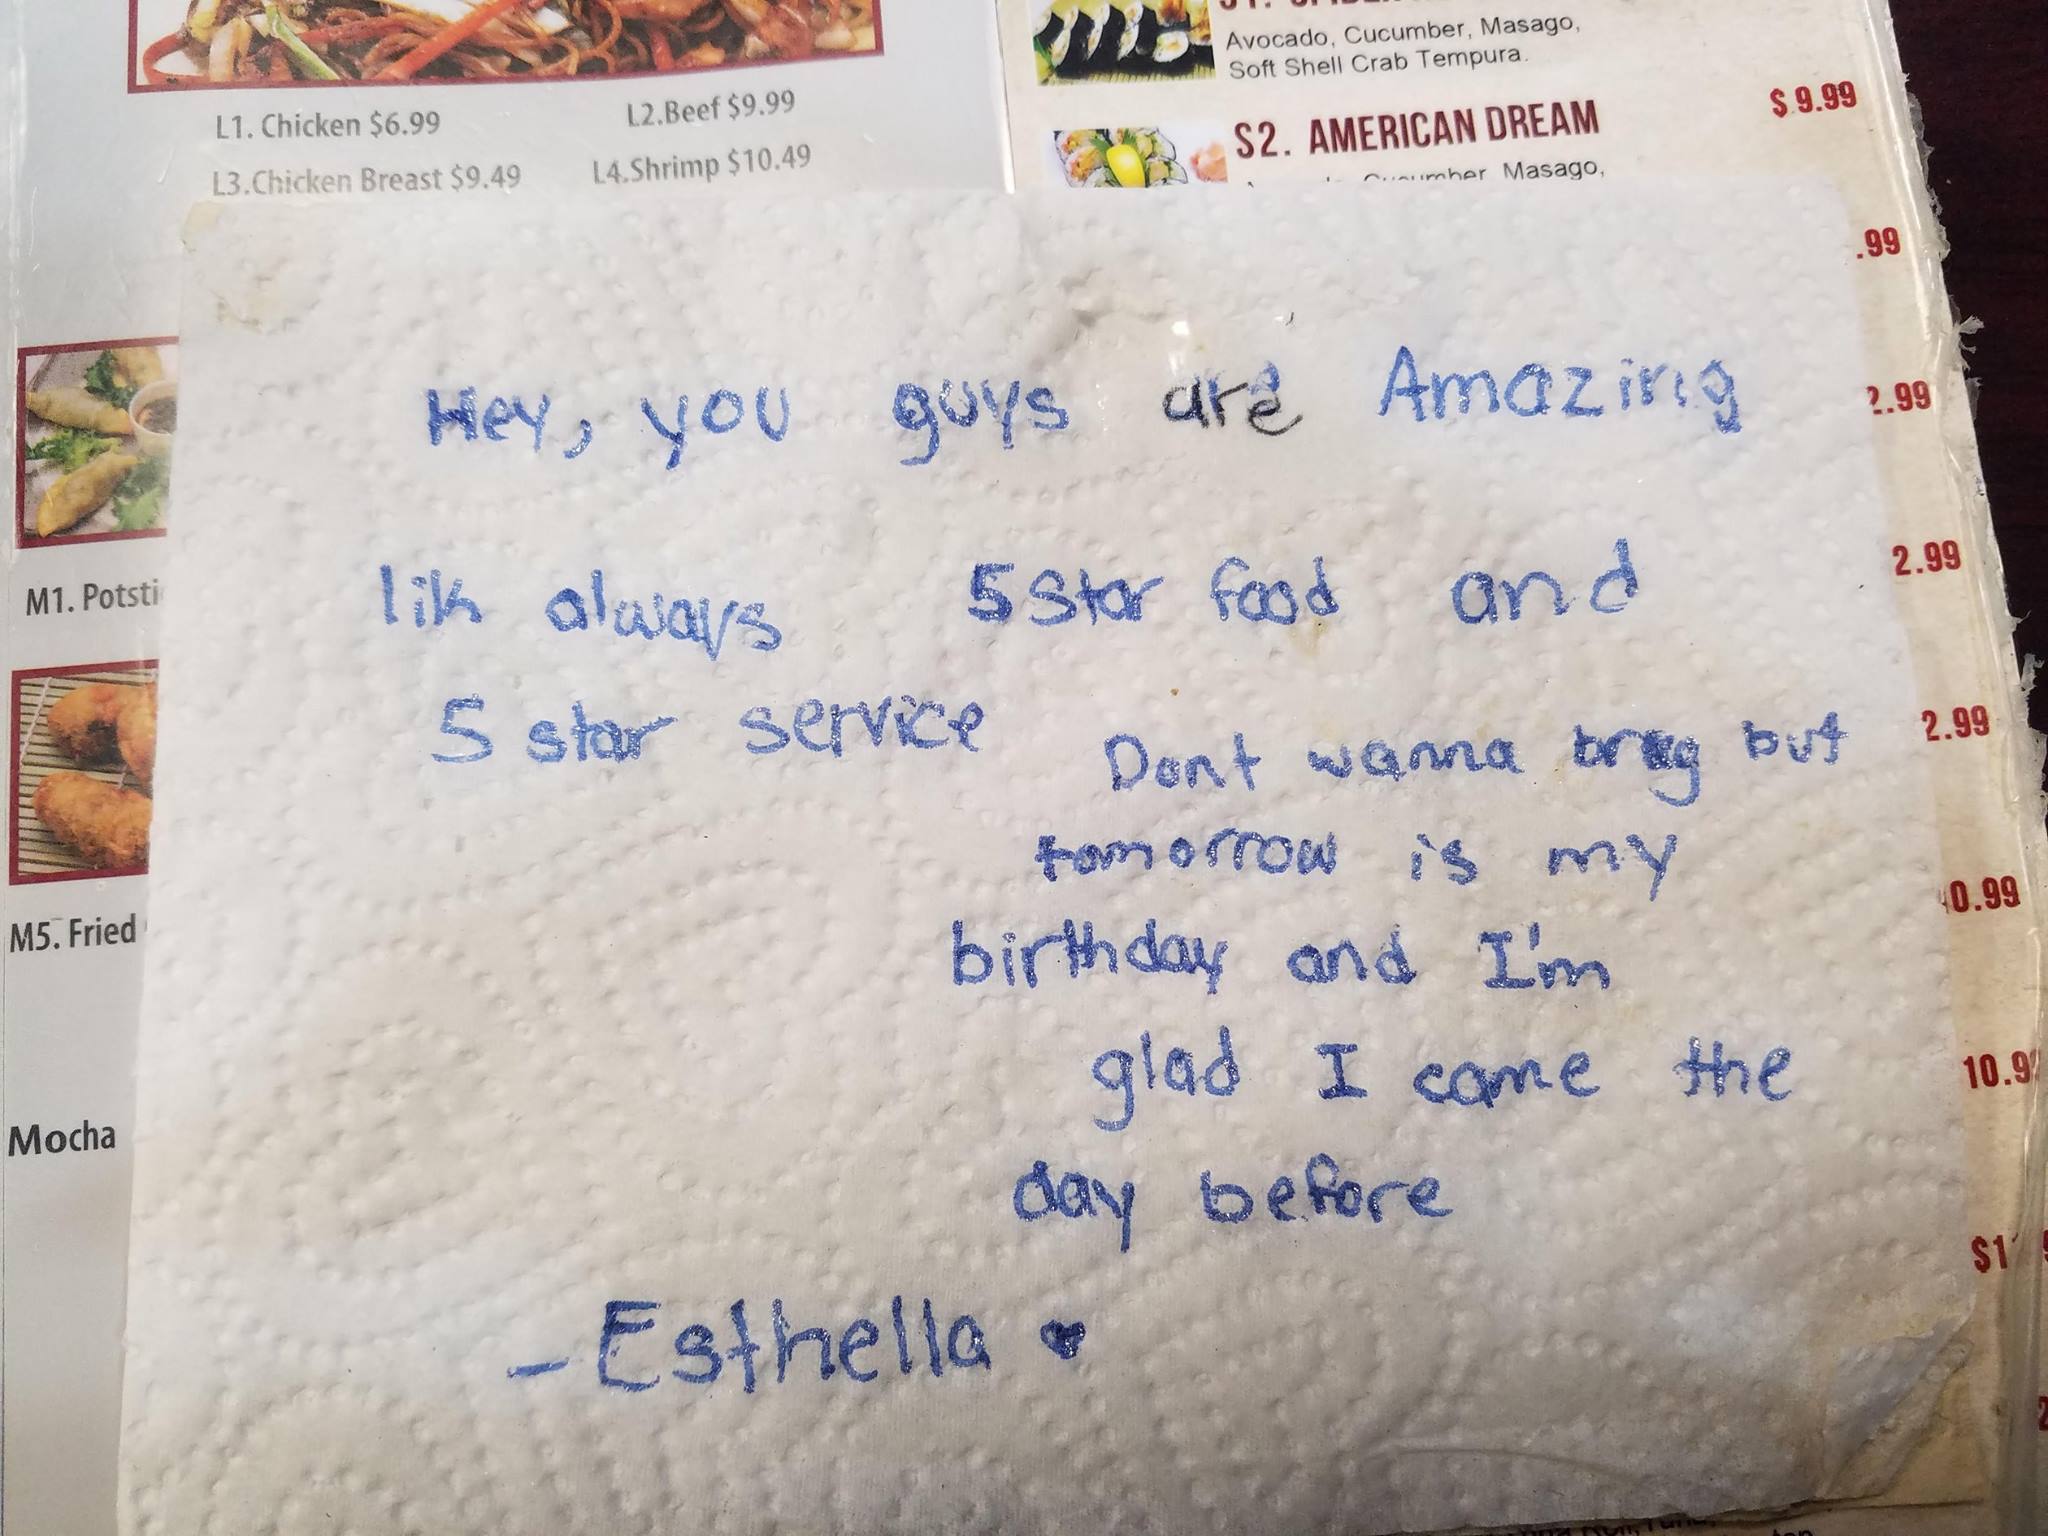 Avocado, Cucumber, Masago,
Soft Shell Crab Tempura.
L1. Chicken $6.99
L2.Beef $9.99
L3.Chicken Breast $9.49
L4.Shrimp $10.49
S2. AMERICAN DREAM
$ 9.99
Cucumber Masago,
.99
Hey, you guys are Amazing
2.99
lik always 5 star food and
2.99
M1. Potsti
5 star service
Dont wanna brag but
2.99
tomorrow is my
M5. Fried
0.99
birthday and I'm
glad I came the
10.9
Mocha
day before
$1
- Esthella ♥